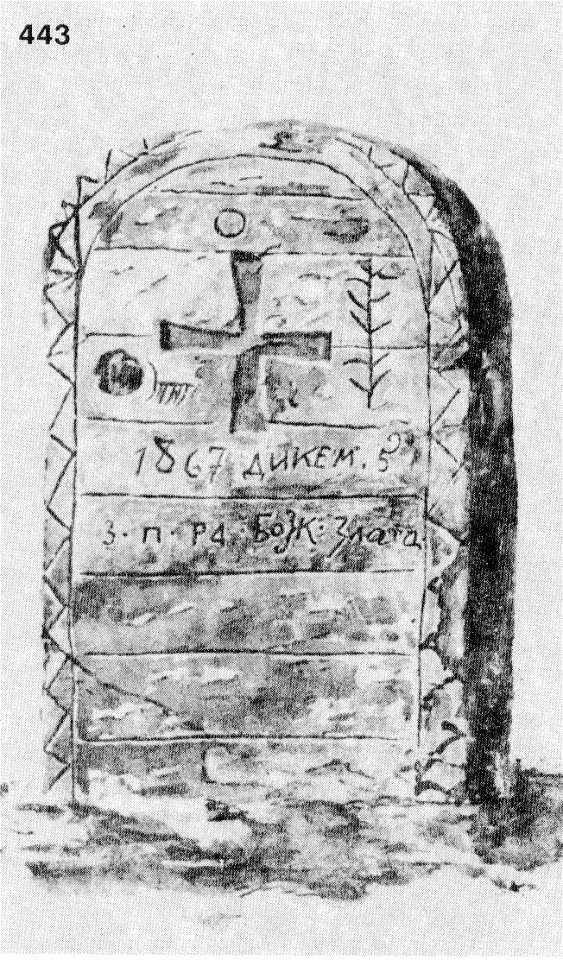 443
1867 дикем. 5
З· П· РА· БОЖ: Злата